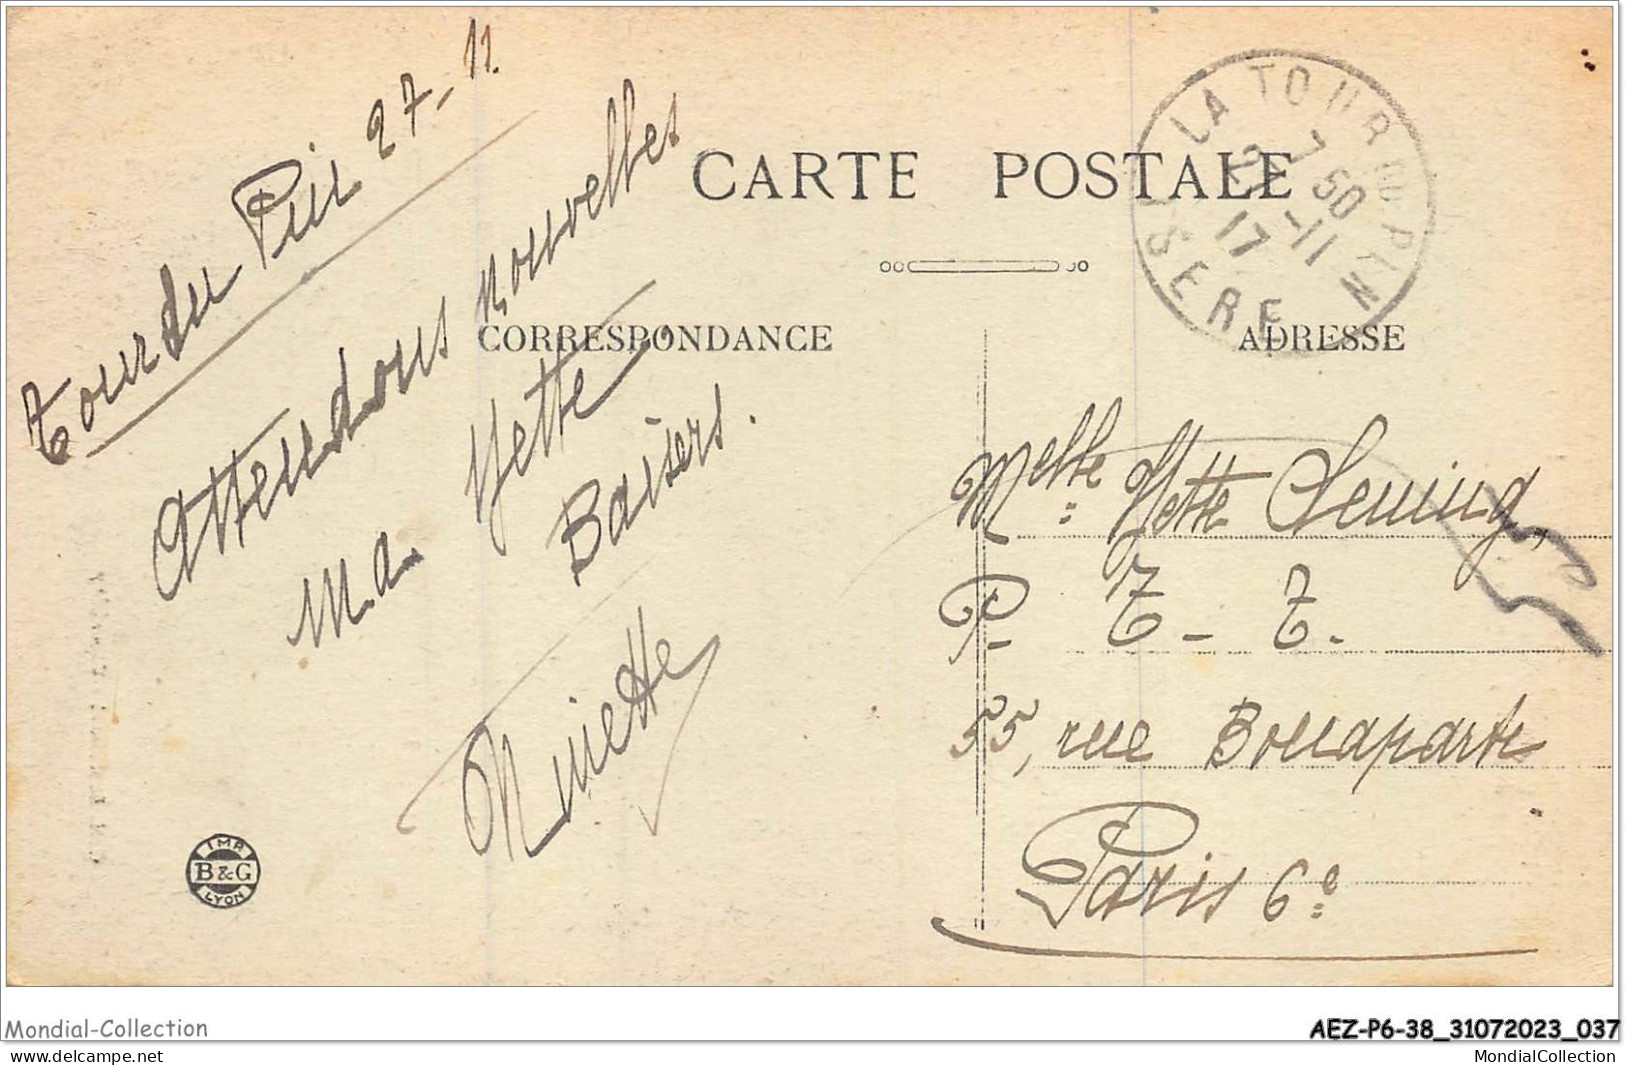 Tour du Pin 27-11.
Attendons nouvelles
Ma Yette.
Baisers.
Ninette
CARTE POSTALE
CORRESPONDANCE
ADRESSE
LA TOUR DU PIN
7 50
27-11
17
ISERE
Melle Yette
P. T. T.
55, rue Bonaparte
Paris 6e
IMP.
B&G
LYON
Mondial-Collection
AEZ-P6-38_31072023_037
www.delcampe.net
MondialCollection